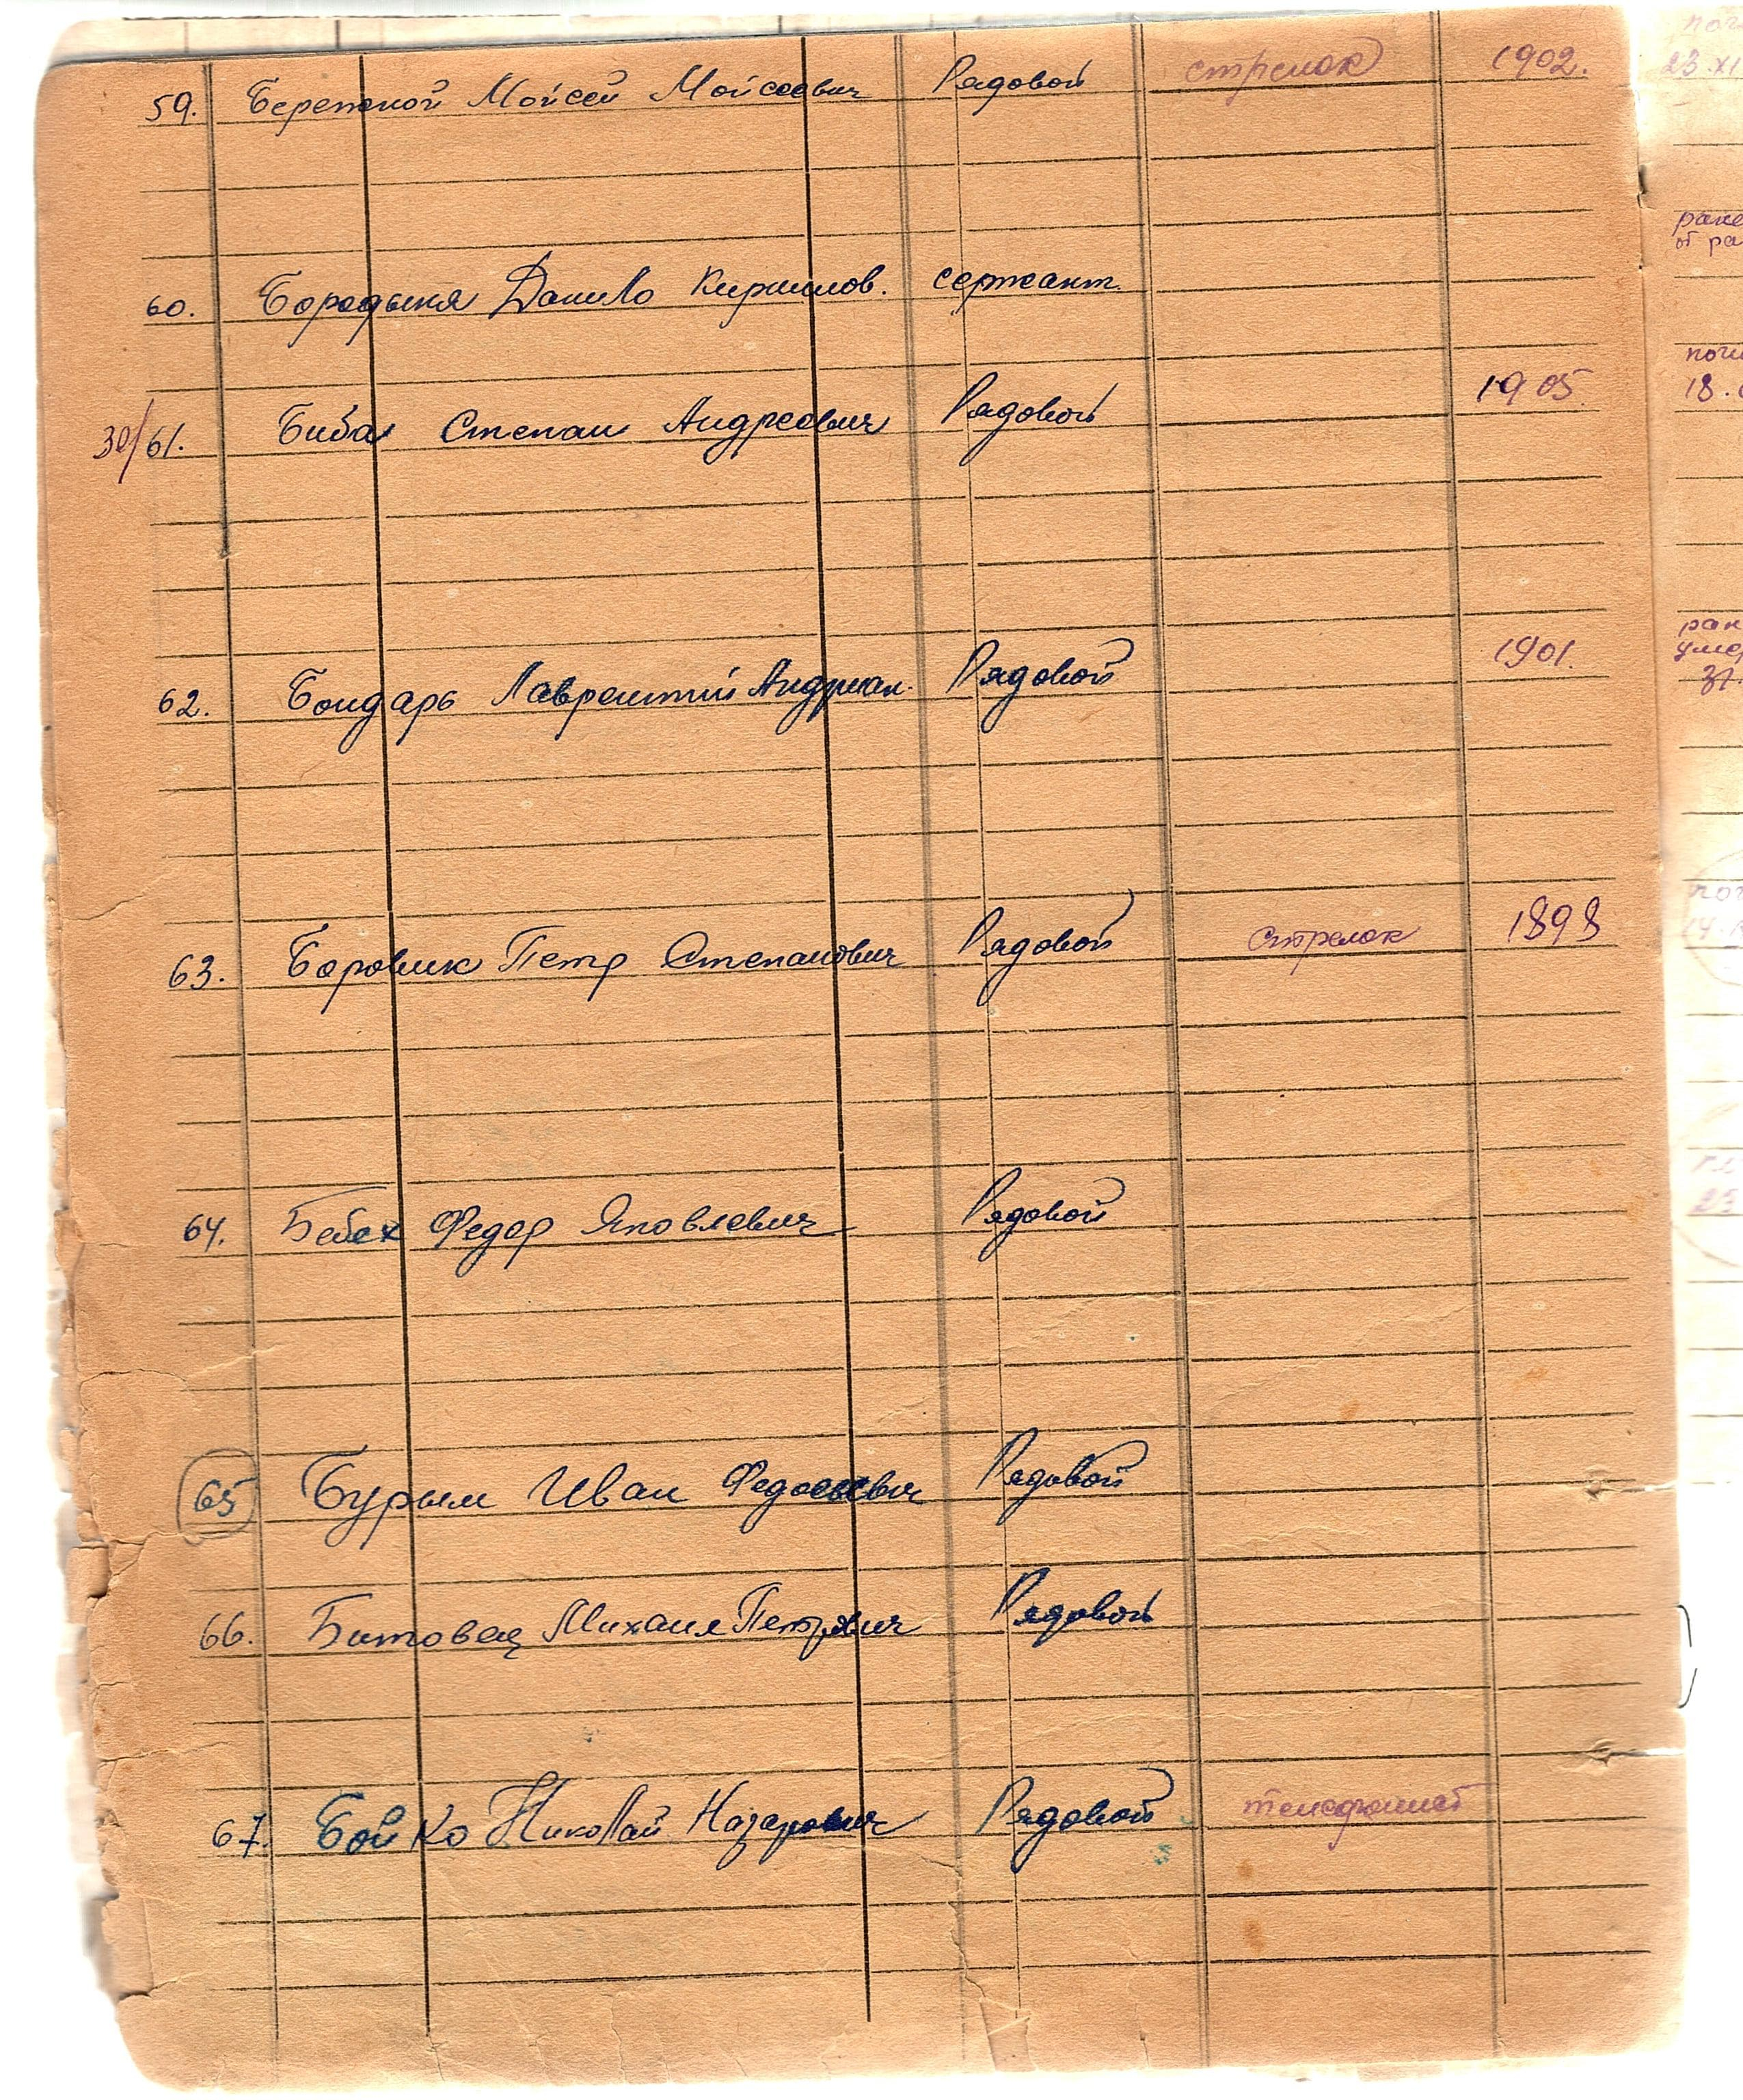 59. Бережной Мойсей Мойсеевич Рядовой стрелок 1902.
60. Бородыня Данило Кирилов. сержант.
30/61. Бибал Степан Андреевич Рядовой 1905
62. Бондарь Лаврентий Андриан. Рядовой 1901.
63. Боровик Петр Степанович Рядовой Стрелок 1898
64. Бебех Федор Яковлевич Рядовой
65 Бурым Иван Рядовой
66. Битовец Михаил Петрович Рядовой
67. Бойко Николай Назарович Рядовой телефонист
23.XI
ране
от ра
18.